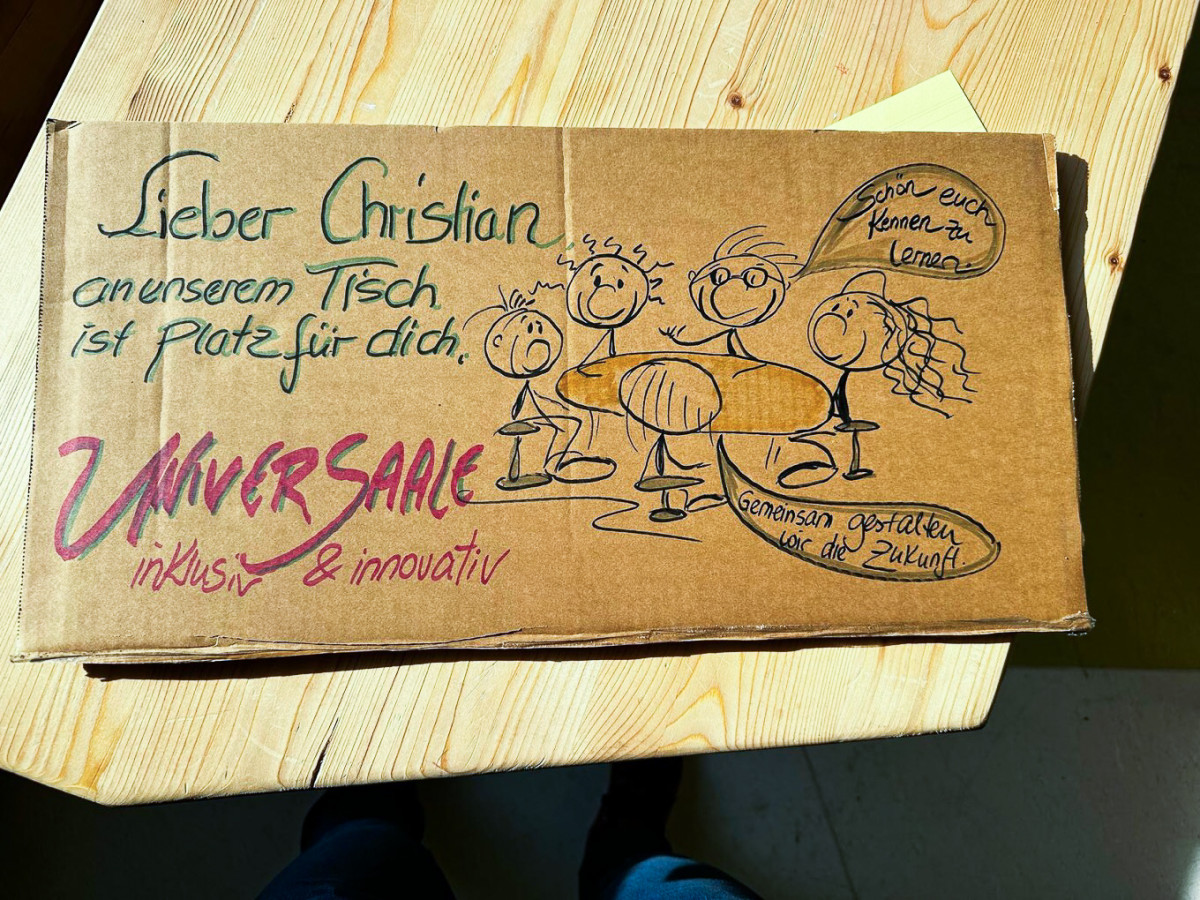 Lieber Christian,
an unserem Tisch
ist Platz für dich.
UNIVERSAALE
inklusiv & innovativ
Schön euch
kennen zu
lernen.
Gemeinsam gestalten
wir die Zukunft.